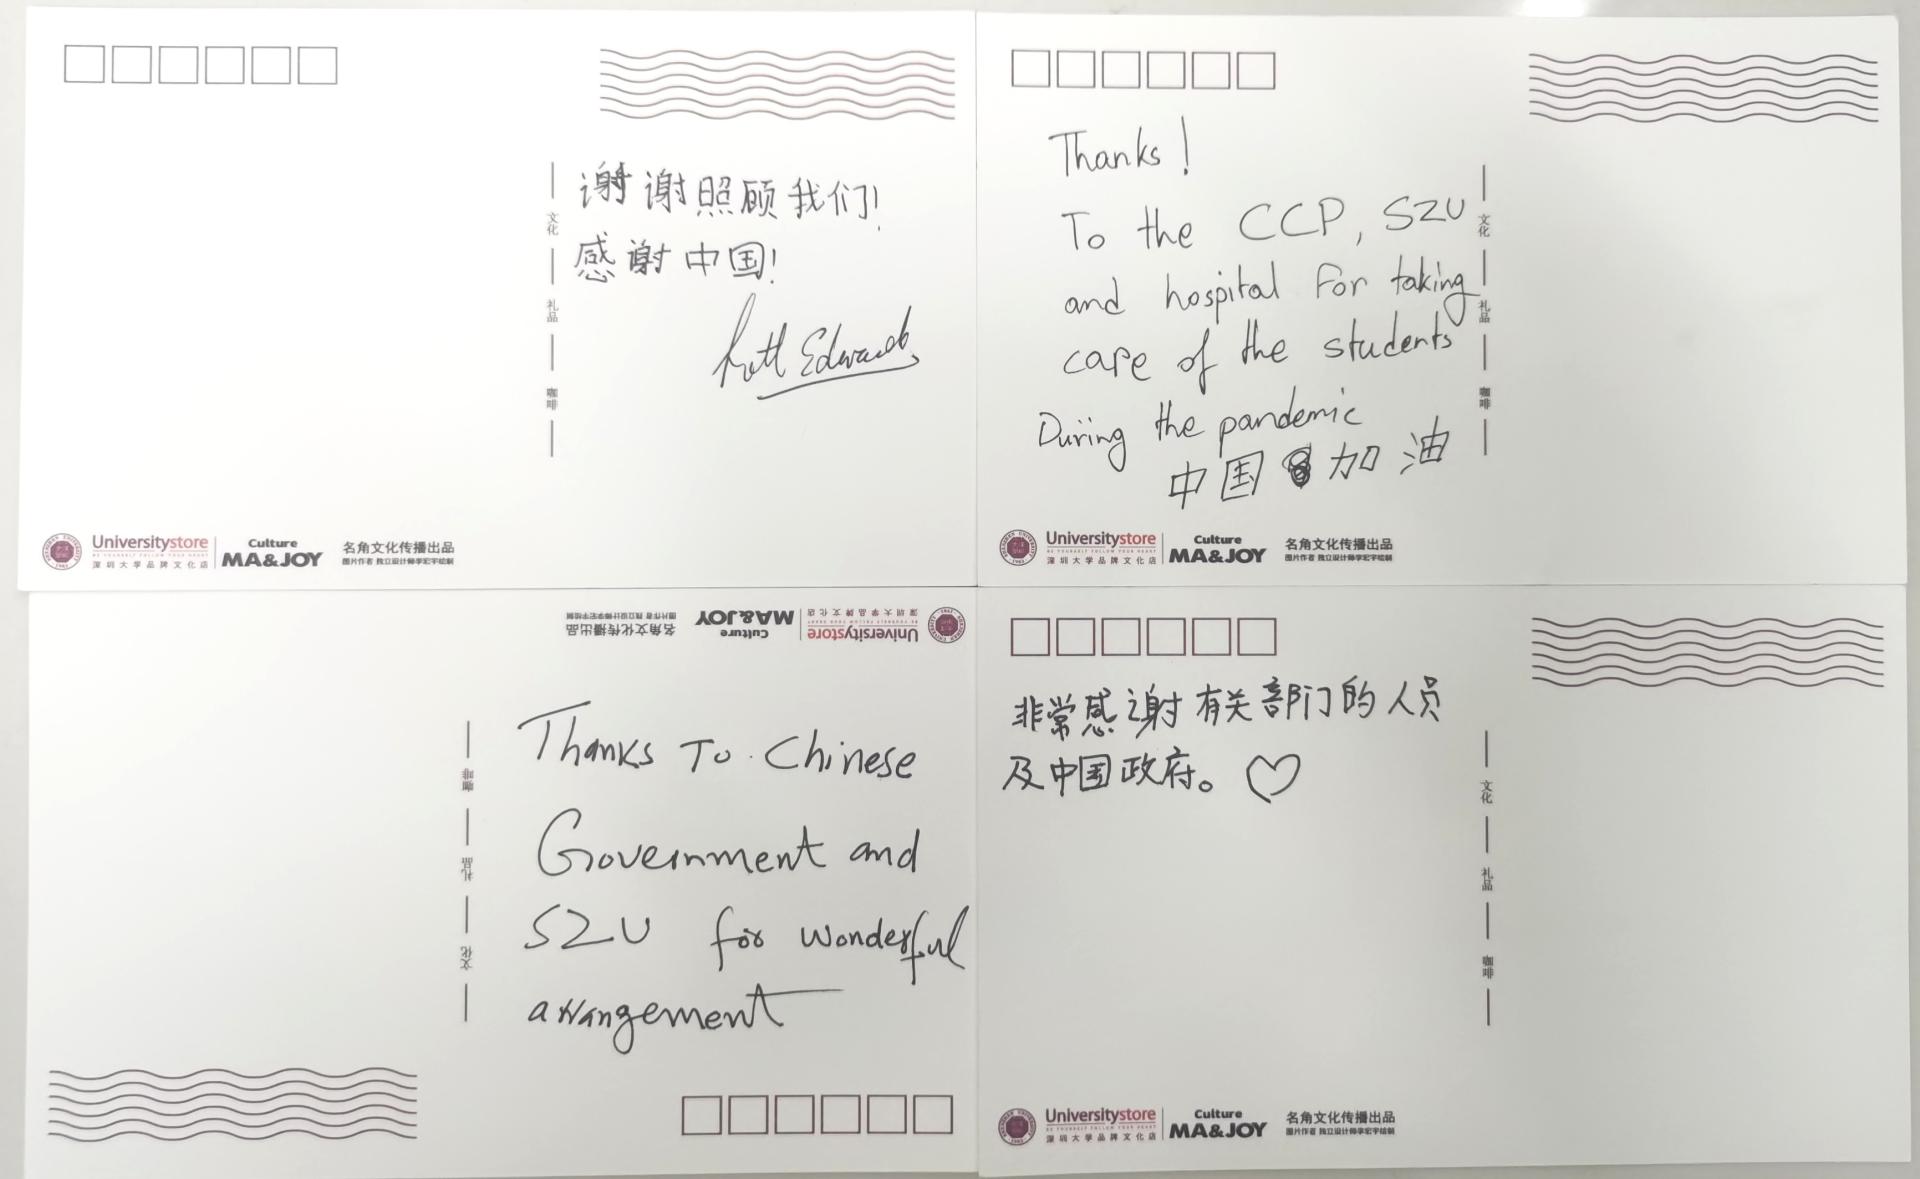 文化
礼品
咖啡
谢谢照顾我们!
感谢中国!
Edwards
Universitystore
BE YOURSELF FOLLOW YOUR HEART
深圳大学品牌文化店
Culture
MA&JOY
名角文化传播出品
图片作者 独立设计师李宏宇绘制
Thanks!
To the CCP, SZU
and hospital For taking
care of the students
During the pandemic
中国加油
文化
礼品
咖啡
Universitystore
BE YOURSELF FOLLOW YOUR HEART
深圳大学品牌文化店
Culture
MA&JOY
名角文化传播出品
图片作者 独立设计师李宏宇绘制
Universitystore
BE YOURSELF FOLLOW YOUR HEART
深圳大学品牌文化店
Culture
MA&JOY
名角文化传播出品
图片作者 独立设计师李宏宇绘制
文化
礼品
咖啡
Thanks To Chinese
Government and
SZU for wonderful
arrangement
非常感谢有关部门的人员
及中国政府。
文化
礼品
咖啡
Universitystore
BE YOURSELF FOLLOW YOUR HEART
深圳大学品牌文化店
Culture
MA&JOY
名角文化传播出品
图片作者 独立设计师李宏宇绘制